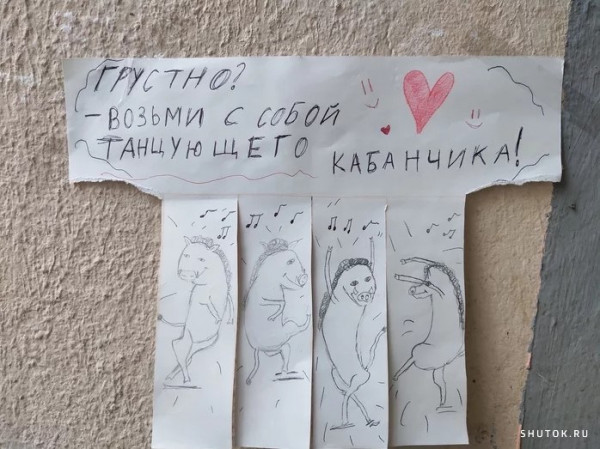 ГРУСТНО?
-ВОЗЬМИ С СОБОЙ
ТАНЦУЮЩЕГО
КАБАНЧИКА!
SHUTOK.RU